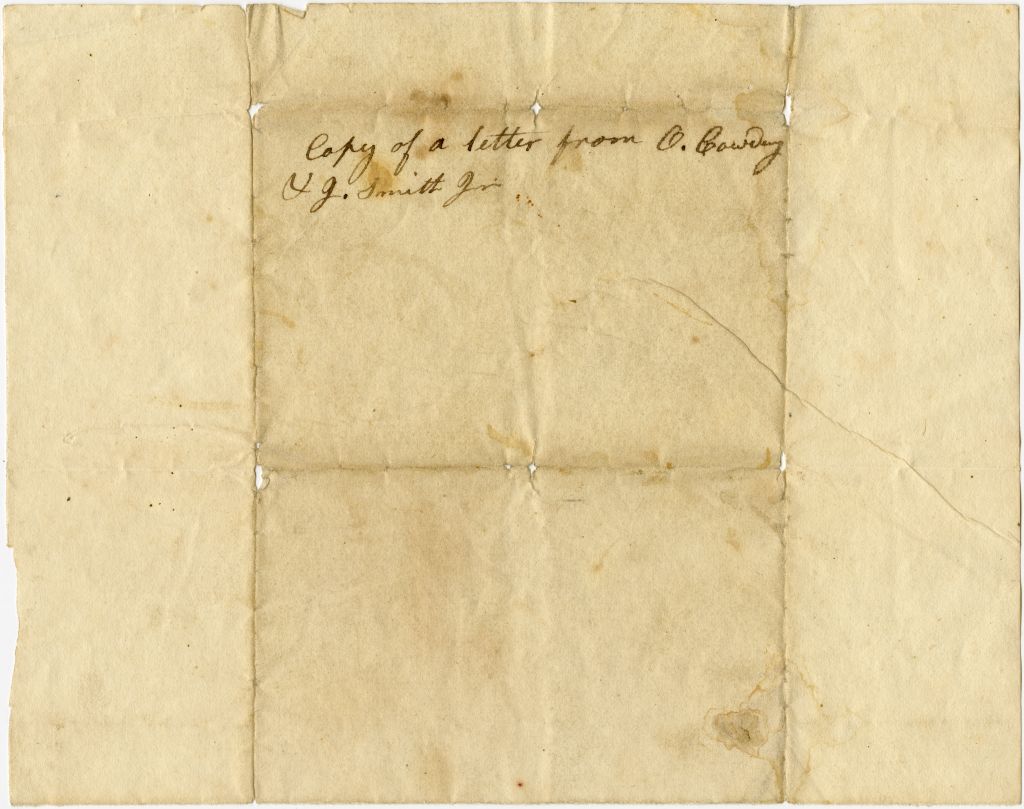 Copy of a letter from O. Cowdery
& J. Smith Jr